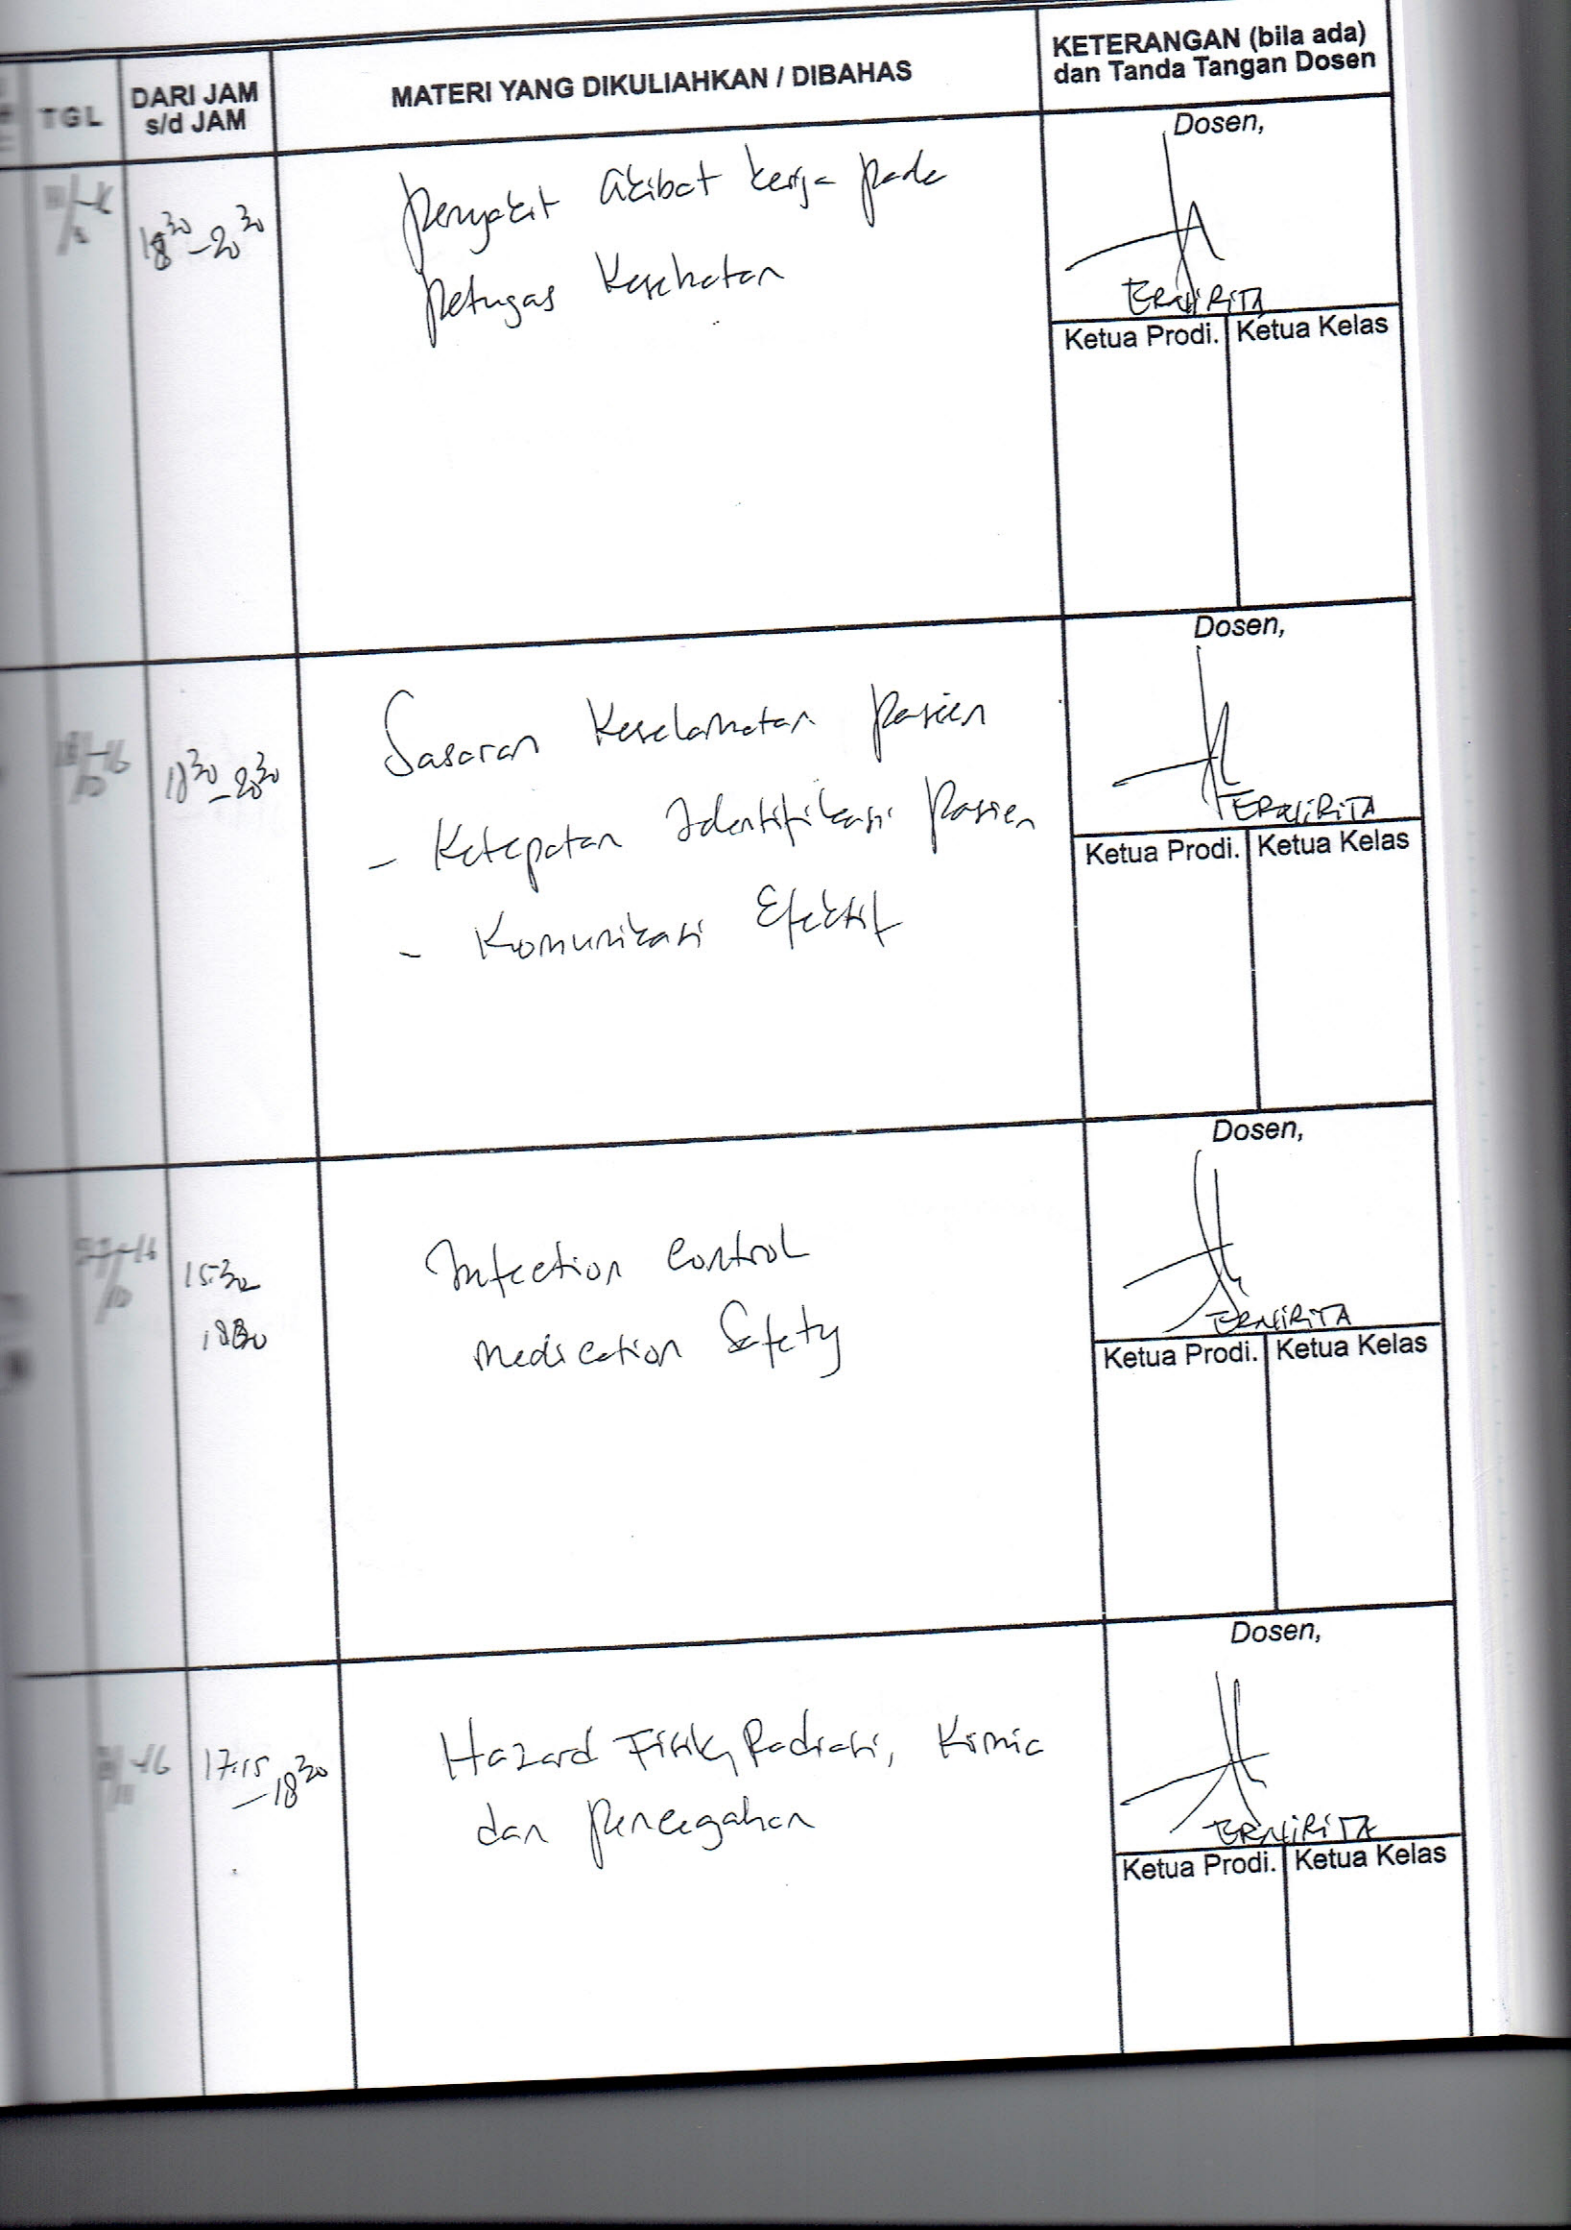 TGL
DARI JAM
s/d JAM
MATERI YANG DIKULIAHKAN / DIBAHAS
KETERANGAN (bila ada)
dan Tanda Tangan Dosen
18 30 - 20 30
Penyakit Akibat kerja pada
petugas Kesehatan
Dosen,
TERNIRITA
Ketua Prodi. Ketua Kelas
18/10-16
18 30 - 20 30
Sasaran Keselamatan Pasien
- Ketepatan Identifikasi Pasien
- Komunikasi Efektif
Dosen,
TERNIRITA
Ketua Prodi. Ketua Kelas
15.30
18 30
Infection Control
medication Safety
Dosen,
TERNIRITA
Ketua Prodi. Ketua Kelas
17.15
- 18 30
Hazard Fisik, Radiasi, Kimia
dan pencegahan
Dosen,
TERNIRITA
Ketua Prodi. Ketua Kelas